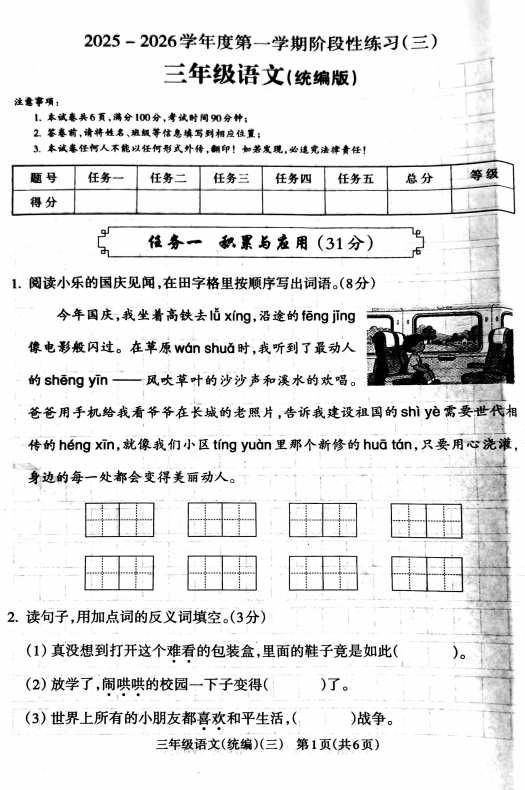 2025－2026学年度第一学期阶段性练习(三)
三年级语文(统编版)
注意事项：
1. 本试卷共6页,满分100分,考试时间90分钟；
2. 答卷前,请将姓名、班级等信息填写到相应位置；
3. 本试卷任何人不能以任何形式外传,翻印！如若发现,必追究法律责任！
题号 任务一 任务二 任务三 任务四 任务五 总分 等级
得分
任务一 积累与应用(31分)
1. 阅读小乐的国庆见闻,在田字格里按顺序写出词语。(8分)
今年国庆,我坐着高铁去lǚ xíng,沿途的fēng jǐng
像电影般闪过。在草原wán shuǎ时,我听到了最动人
的shēng yīn——风吹草叶的沙沙声和溪水的欢唱。
爸爸用手机给我看爷爷在长城的老照片,告诉我建设祖国的shì yè需要世代相
传的héng xīn,就像我们小区tíng yuàn里那个新修的huā tán,只要用心浇灌,
身边的每一处都会变得美丽动人。
2. 读句子,用加点词的反义词填空。(3分)
(1) 真没想到打开这个难看的包装盒,里面的鞋子竟是如此( )。
(2) 放学了,闹哄哄的校园一下子变得( )了。
(3) 世界上所有的小朋友都喜欢和平生活,( )战争。
三年级语文(统编)(三) 第1页(共6页)